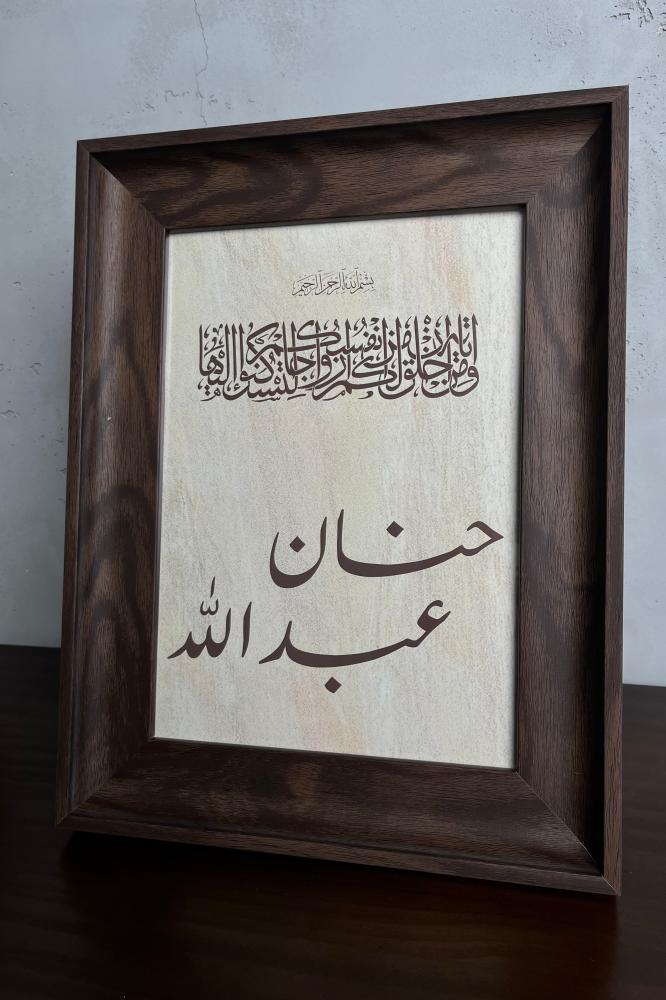 بسم الله الرحمن الرحيم
ومن آياته أن خلق لكم من أنفسكم أزواجا لتسكنوا إليها
حنان
عبد الله